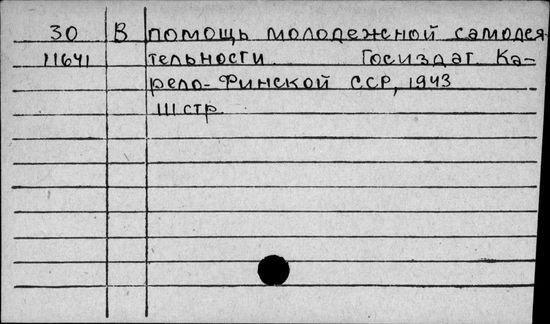 30 В помощь молодежной самодея
11641 тельности. Госиздат Ка-
рело-Финской ССР, 1943
111 стр.